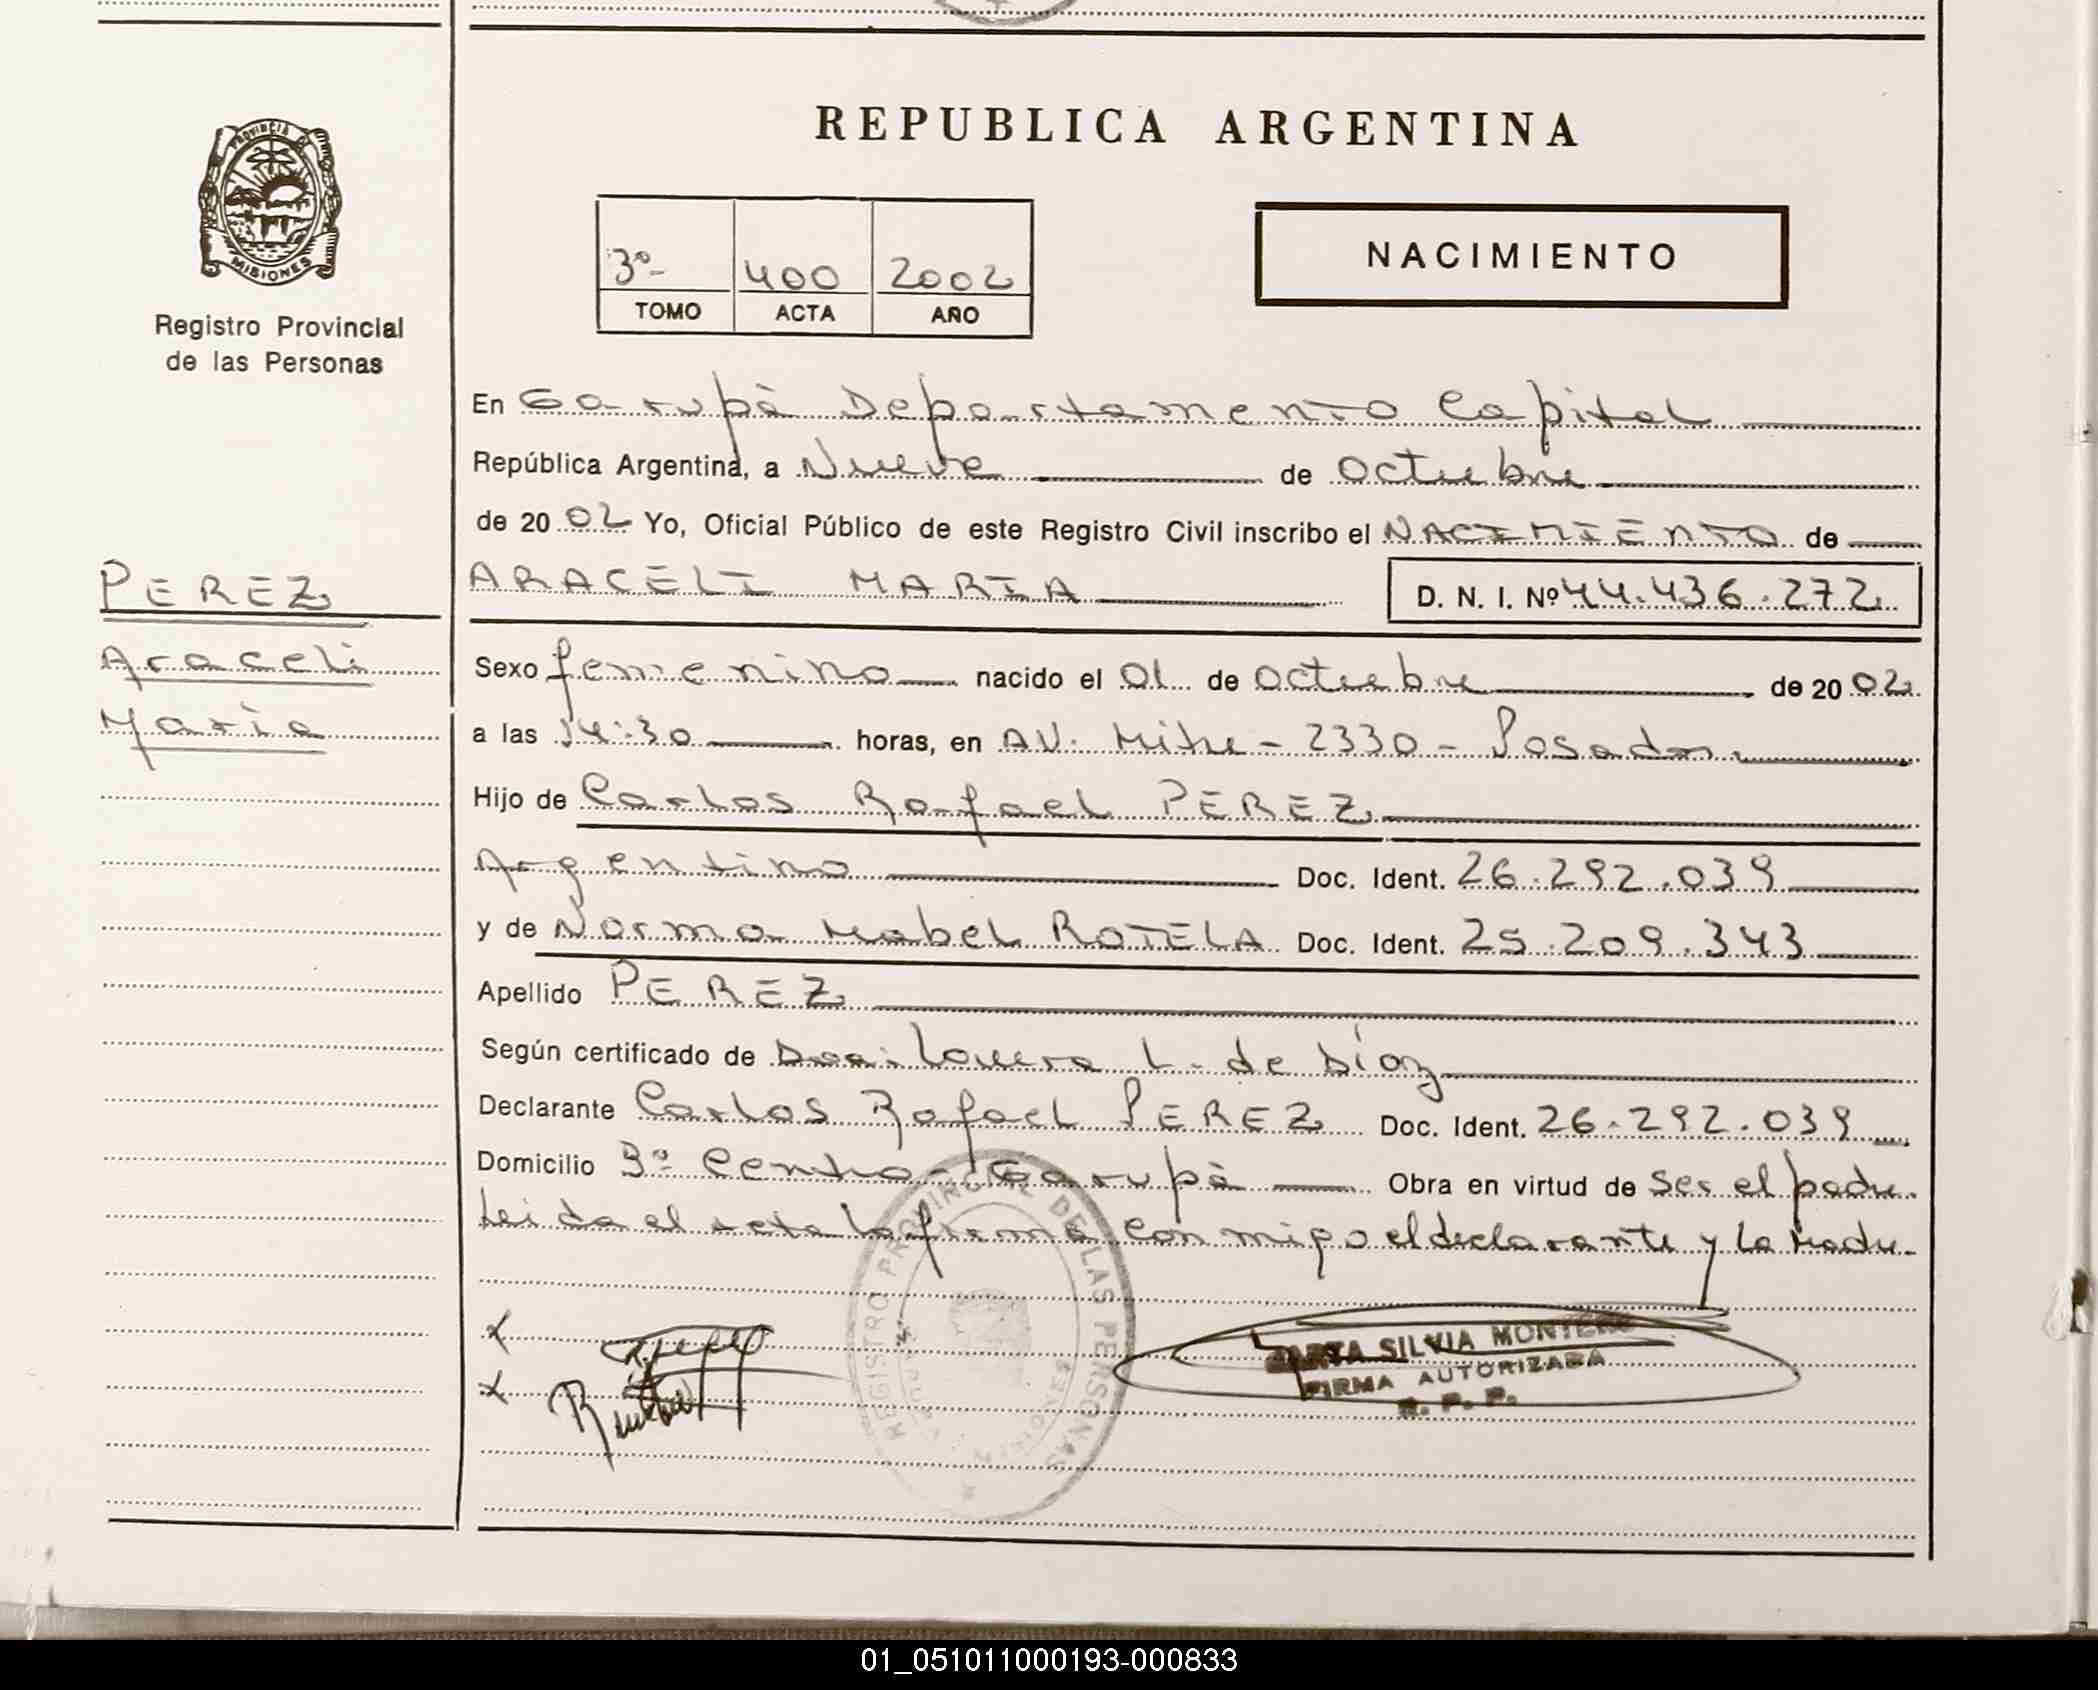 REPUBLICA ARGENTINA
PROVINCIA DE
MISIONES
Registro Provincial
de las Personas
3º- 400 2002
TOMO ACTA AÑO
NACIMIENTO
En Garupà Departamento Capital
República Argentina, a Nueve de Octubre
de 2002 Yo, Oficial Público de este Registro Civil inscribo el NACIMIENTO de
ARACELI MARIA D. N. I. Nº 44.436.272
PEREZ
Araceli
Marìa
Sexo femenino nacido el 01 de Octubre de 2002
a las 14:30 horas, en AV. Mitre - 2330 - Posadas
Hijo de Carlos Rafael PEREZ
Argentino Doc. Ident. 26.292.039
y de Norma Mabel ROTELA Doc. Ident. 25.209.343
Apellido PEREZ
Según certificado de L. de Díaz
Declarante Carlos Rafael PEREZ Doc. Ident. 26.292.039
Domicilio Bº Centro - Garupà Obra en virtud de ser el padre.
Leida el acta la firma conmigo el declarante y la Madre.
REGISTRO PROVINCIAL DE LAS PERSONAS
MISIONES
SILVIA MONTERO
FIRMA AUTORIZADA
R. P. P.
01_051011000193-000833